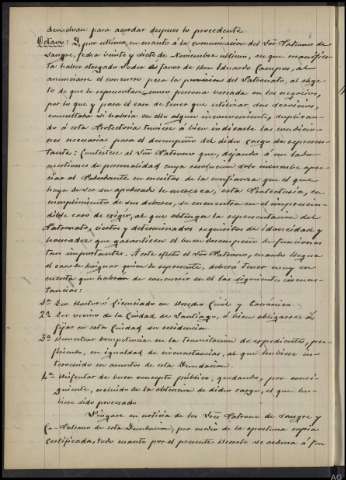 devuelvan para acordar despues lo procedente
Octavo: Y por ultimo, en cuanto á la comunicacion del Sor Patrono de
Sangre, fecha veinte y siete de Noviembre ultimo, en que manifies-
ta haber otorgado Poder á favor de Don Eduardo Campos, al
anunciarse el concurso para la provision del Patronato, al obje-
to de que le represente como persona versada en los negocios,
por lo que y para el caso de tener que utilizar sus servicios,
consultaba si habria en ello algun inconveniente, suplican-
do á esta Protectoria tuviese á bien indicarle las condicio-
nes necesarias para el desempeño del dicho cargo de represen-
tante: Contestar al Sor Patrono que, dejando á un lado
motivos de personalidad cuya estimacion solo incumbe apre-
ciar al Poderdante en méritos de la confianza que el que
haya de ser su apoderado le merezca, esta Protectoria, en
cumplimiento de sus deberes, se encuentra en el imprescin-
dible caso de exigir, al que obtenga la representacion del
Patronato, ciertos y determinados requisitos de idoneidad y
honradez que garanticen el buen desempeño de funciones
tan importantes. A este efecto el Sor Patrono, cuando llegue
el caso de designar quien le represente, deberá tener muy en
cuenta que habrán de concurrir en él las siguientes circuns-
tancias:
1ª Ser Doctor ó Licenciado en Derecho Civil y Canónico.
2ª Ser vecino de la Ciudad de Santiago, ó bien obligarse á
fijar en esta Ciudad su residencia
3ª Demostrar competencia en la tramitacion de expedientes, pre-
firiendo, en igualdad de circunstancias, al que hubiese in-
tervenido en asuntos de esta Fundacion.
4ª Disfrutar de buen concepto público, quedando, por consi-
guiente, excluido de la obtencion de dicho cargo, el que hu-
biese sido procesado
Póngase en noticia de los Sres Patrono de Sangre y
Co-Patrono de esta Fundacion, por medio de la oportuna copia
certificada, todo cuanto por el presente Decreto se ordena á fin
AG